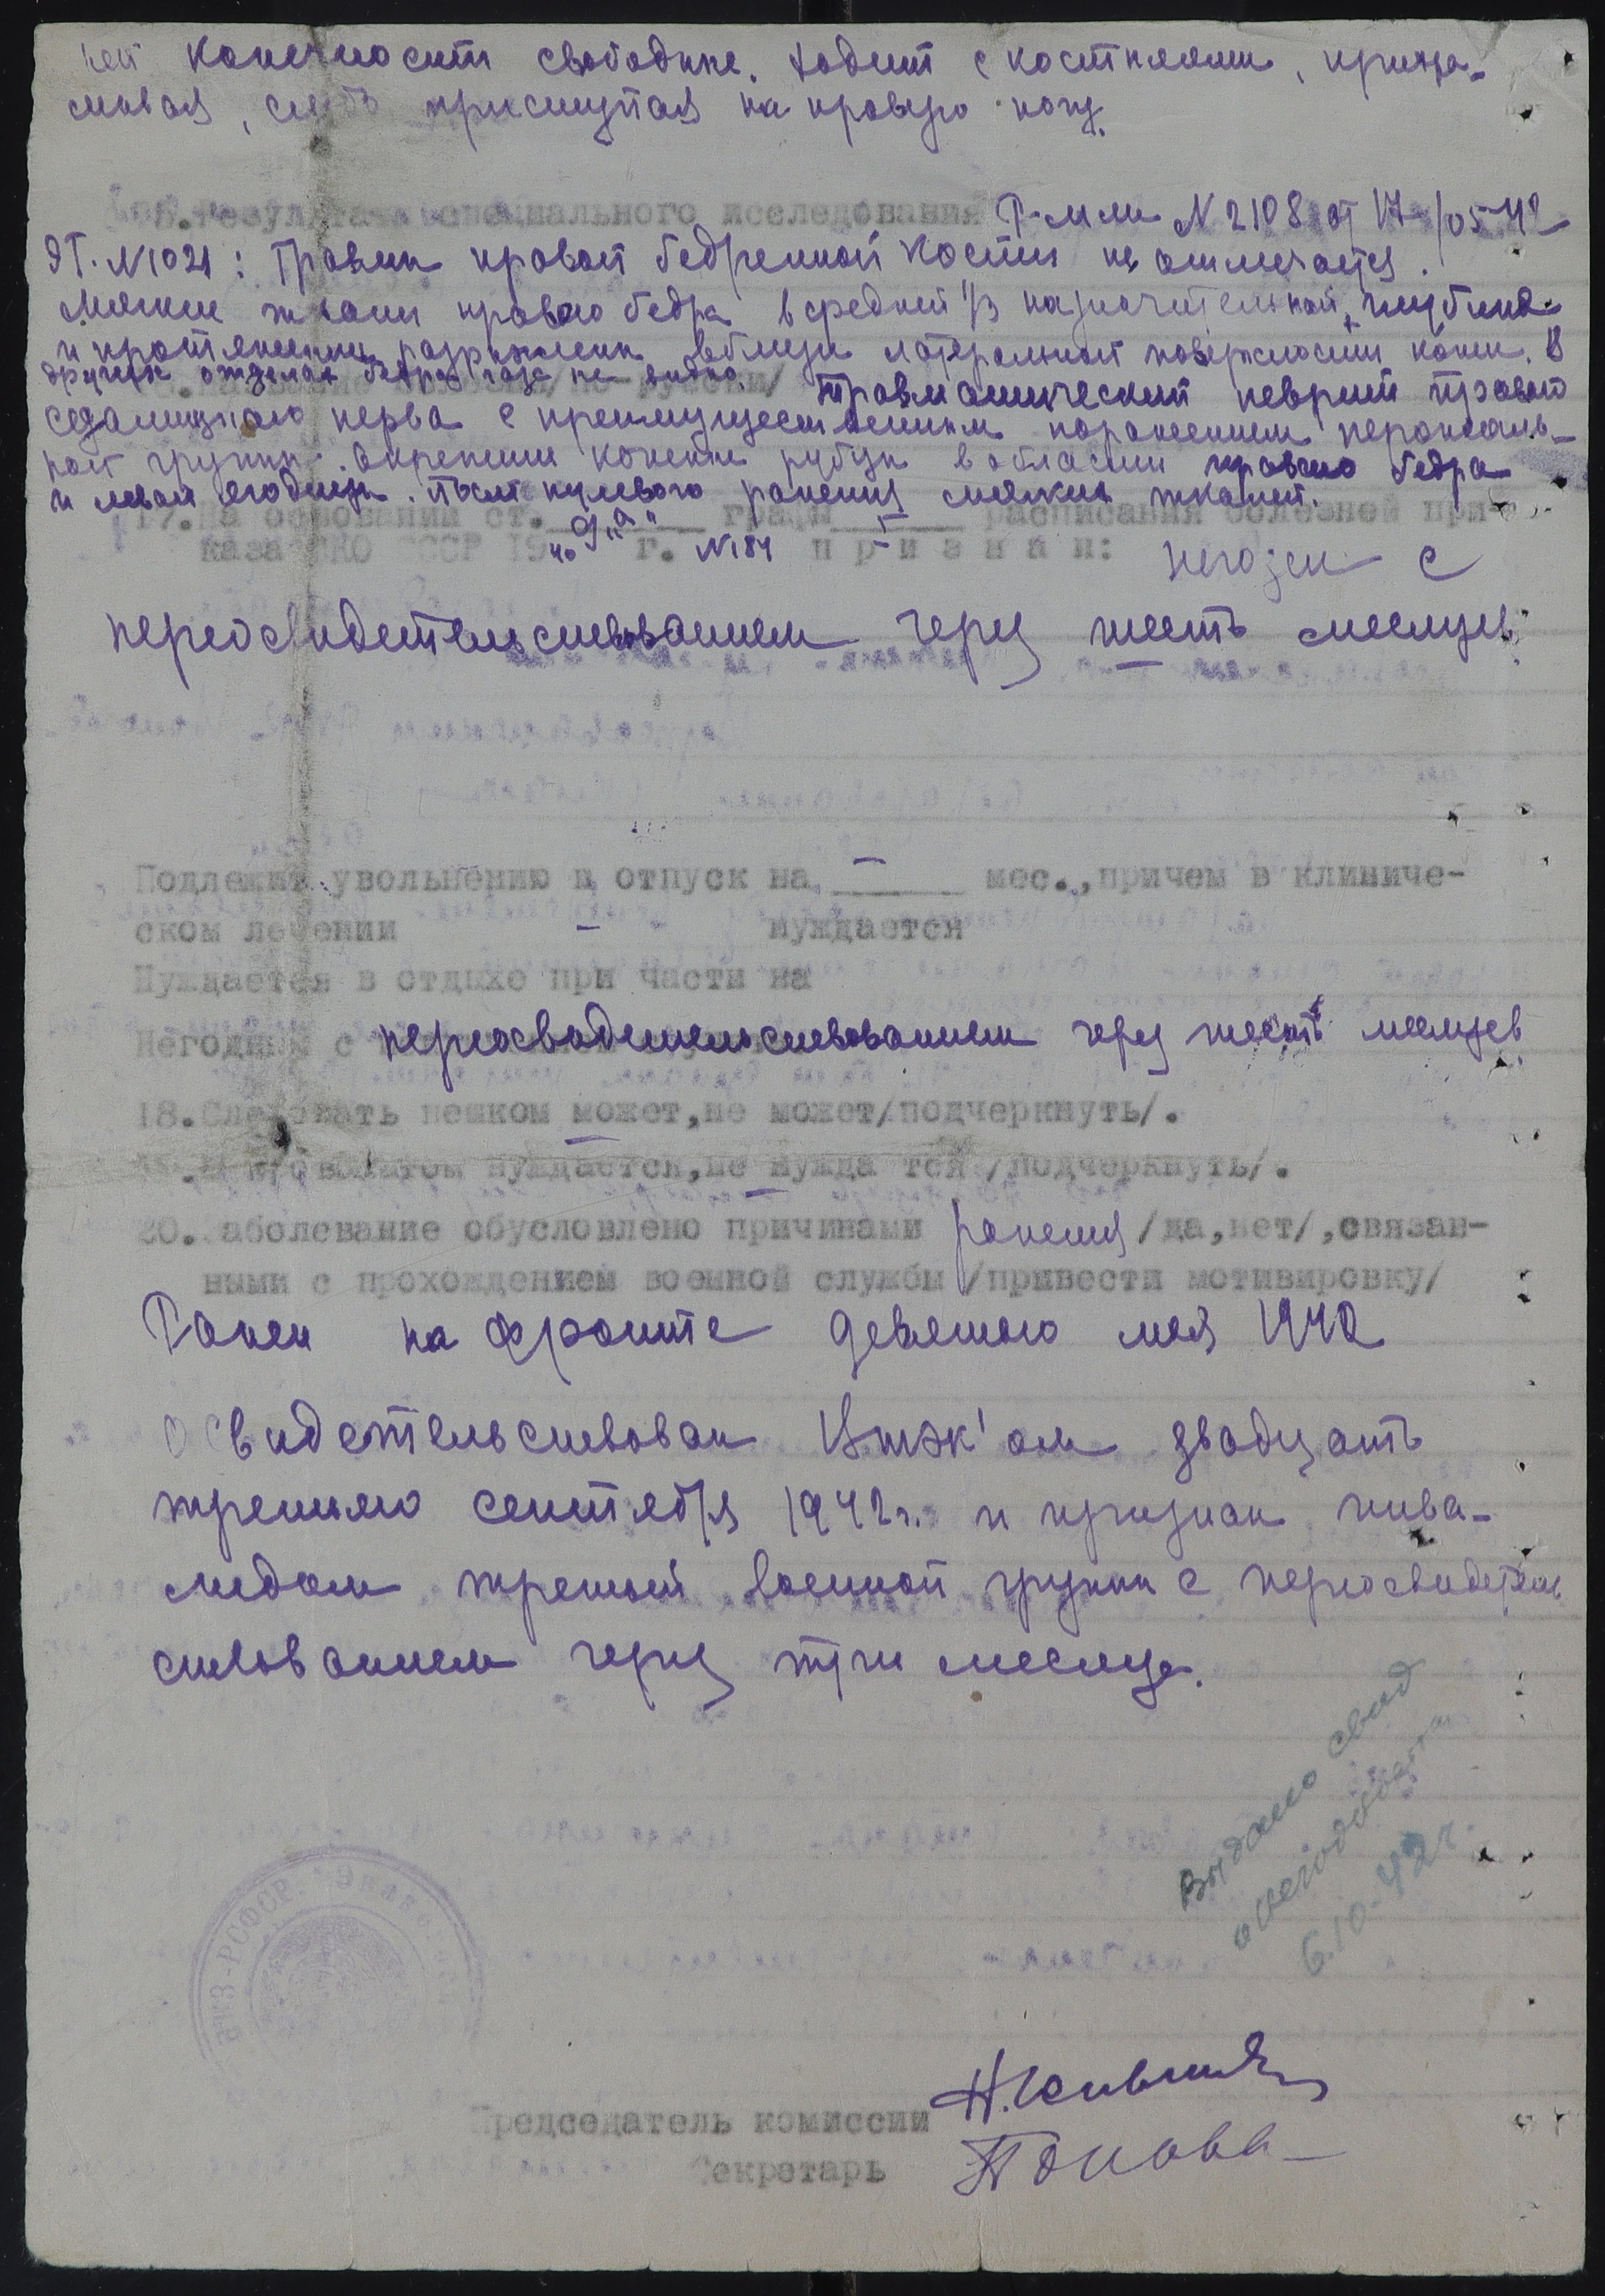 ней конечности свободные. Ходит с костылями, прихра-
мывая, слегка приступая на правую ногу.
15. Результаты специального исследования Р-мми N 2108 от 17/05-42
ЭГ. N1021: Травмы правой бедренной кости не отмечается.
Мягкие ткани правого бедра в средней 1/3 на значительной глубине
и протяжении разрыхлены вблизи латеральной поверхности кожи. В
других отделах бедра газа не видно. Травматический неврит правого
/по-русски/
седалищного нерва с преимущественным поражением перонеаль-
ной группы. Окрепшие кожные рубцы в области правого бедра
и левой ягодицы. После пулевого ранения мягких тканей.
17. На основании ст. 9 "а" графы I расписания болезней при-
каза НКО СССР 1940 г. N184 признан: негоден с
переосвидетельствованием через шесть месяцев
Подлежит увольнению в отпуск на — мес., причем в клиниче-
ском лечении — нуждается
Нуждается в отдыхе при части на
Негодным с переосвидетельствованием через шесть месяцев
18. Следовать пешком может, не может /подчеркнуть/.
нуждается, не нужда тся /подчеркнуть/.
20. Заболевание обусловлено причинами ранения /да, нет/, связан-
ными с прохождением военной службы /привести мотивировку/
Ранен на фронте девятого мая 1942
Освидетельствован Втэк'ом двадцать
третьего сентября 1942 г. и признан инва-
лидом третьей военной группы с переосвидетель
ствованием через три месяца.
Выдано свид
о негодности
6.10-42 г.
НКЗ-РСФСР.
Председатель комиссии
Секретарь Попова